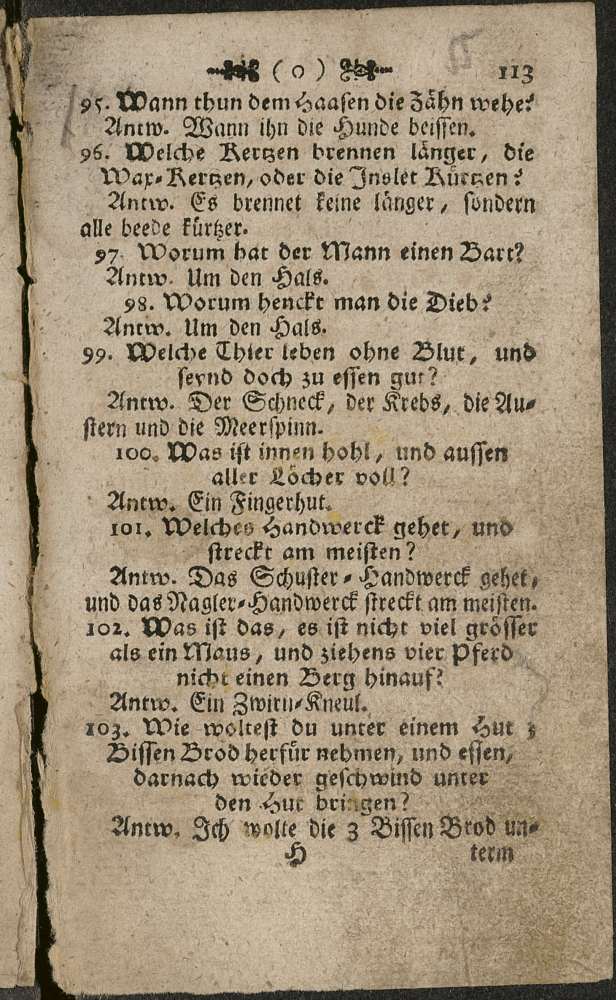 ( o ) 113
95. Wann thun dem Haasen die Zähn wehe?
Antw. Wann ihn die Hunde beissen.
96. Welche Kertzen brennen länger, die
Wax-Kertzen, oder die Inslet Kürtzen?
Antw. Es brennet keine länger, sondern
alle beede kürtzer.
97. Worum hat der Mann einen Bart?
Antw. Um den Hals.
98. Worum henckt man die Dieb?
Antw. Um den Hals.
99. Welche Thier leben ohne Blut, und
seynd doch zu essen gut?
Antw. Der Schneck, der Krebs, die Au-
stern und die Meerspinn.
100. Was ist innen hohl, und aussen
aller Löcher voll?
Antw. Ein Fingerhut.
101. Welches Handwerck gehet, und
streckt am meisten?
Antw. Das Schuster-Handwerck gehet,
und das Nagler-Handwerck streckt am meisten.
102. Was ist das, es ist nicht viel grösser
als ein Maus, und ziehens vier Pferd
nicht einen Berg hinauf?
Antw. Ein Zwirn-Kneul.
103. Wie woltest du unter einem Hut 3
Bissen Brod herfür nehmen, und essen,
darnach wieder geschwind unter
den Hut bringen?
Antw. Ich wolte die 3 Bissen Brod un-
H term